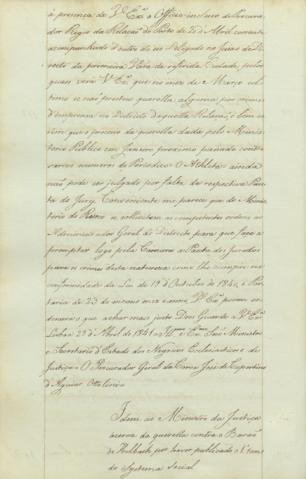 à presença de V. Exª o Officio incluso do Procura
dor Regio da Relação do Porto de 20 de Abril corrente
acompanhado d'outro do seo Delegado no Juizo de Di
reito da primeira Vara da referida Cidade, pelos
quaes verá V. Exª que no mez de Março ul
timo se não prestou querella alguma por crime
d'imprensa no Districto daquella Relação, e bem as
sim que o processo da querella dada pelo Minis
terio Publico em Janeiro proximo passado contra
varios numeros do Periodico O Athleta ainda
não pode ser julgado por falta da respectiva Pau
ta do Jury. Conveniente me parece que do Minis
terio do Reino se sollicitem as competentes ordens ao
Administrador Geral do Districto para que faça a
promptar logo pela Camara a Pauta dos Jurados
para os crimes desta natureza como lhe cumpre na
conformidade da Lei de 19 d'Outubro de 1840, e Por
taria de 23 de Vª Exª porem or
denará o que achar mais justo. Deos Guarde a V. Exª
Lisboa 29 d'Abril de 1841 = Illmo. e Exmo. Snr. Ministro
e Secretario d'Estado dos Negocios Ecclesiasticos e de
Justiça = O Procurador Geral da Coroa José de Cupertino
d'Aguiar Ottolini =
Idem ao Ministro da Justiça
acerca da querella contra o Barão
de Holbach por haver publicado o 1º tomo
do Systema social